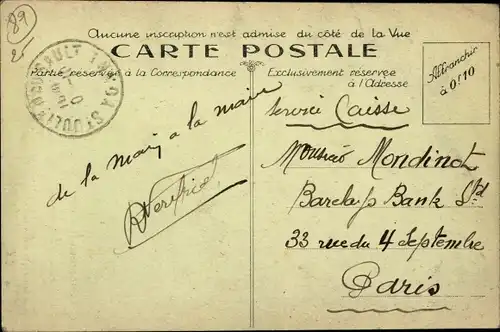 89
Aucune inscription n'est admise du côté de la Vue
CARTE POSTALE
Partie réservée à la Correspondance
Exclusivement réservée
à l'Adresse
Affranchir
à 0f10
de la main a la main
Service Caisse
Monsieur Mondinot
Barclays Bank Ltd
33 rue du 4 Septembre
Paris